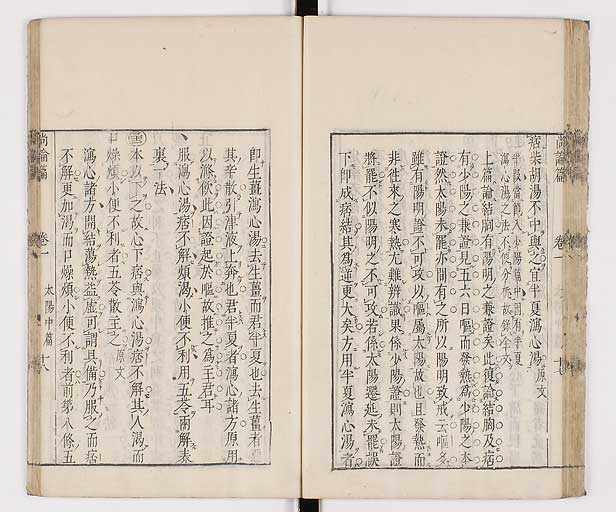 痞柴胡湯不中與之宜半夏瀉心湯原文
上篇論結胸有陽明之兼證矣此復論結胸及痞
有少陽之兼證見五六日嘔而發熱爲少陽之本
證然太陽未罷亦間有之所以陽明致戒云嘔多
雖有陽明證不可攻以嘔屬太陽故也且發熱而
非往來之寒熱尤難辨識果係少陽證則太陽證
將罷不似陽明之不可攻若係太陽遷延未罷誤
下即成痞結其爲逆更大矣方用半夏瀉心湯者
即生薑瀉心湯去生薑而君半夏也去生薑者
其辛散引津液上奔也君半夏者瀉心諸方原用
以滌飲此因證起於嘔故推之爲主君耳
服瀉心湯痞不解煩渴小便不利用五苓兩解表
裏一法
本以下之故心下痞與瀉心湯痞不解其人渴而
口燥煩小便不利者五苓散主之原文
瀉心諸方開結蕩熱益虛可謂具備乃服之而痞
不解更加渴而口燥煩小便不利者前第八條五
尚論篇
卷一
太陽中篇
十八
尚論篇
卷一